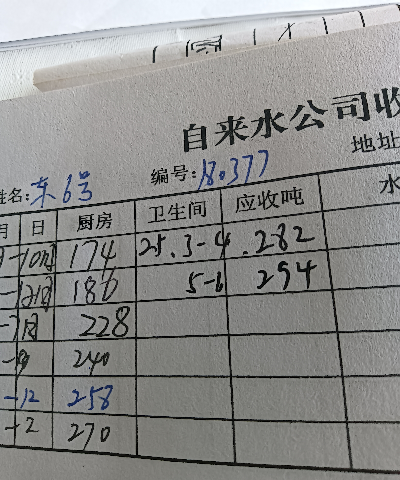 自来水公司收
姓名: 东6号 编号: 18.377 地址
月 日 厨房 卫生间 应收吨 水
-10月 174 25.3-4 .282
-12月 186 5-6 294
-7月 228
240
-12 258
-2 270